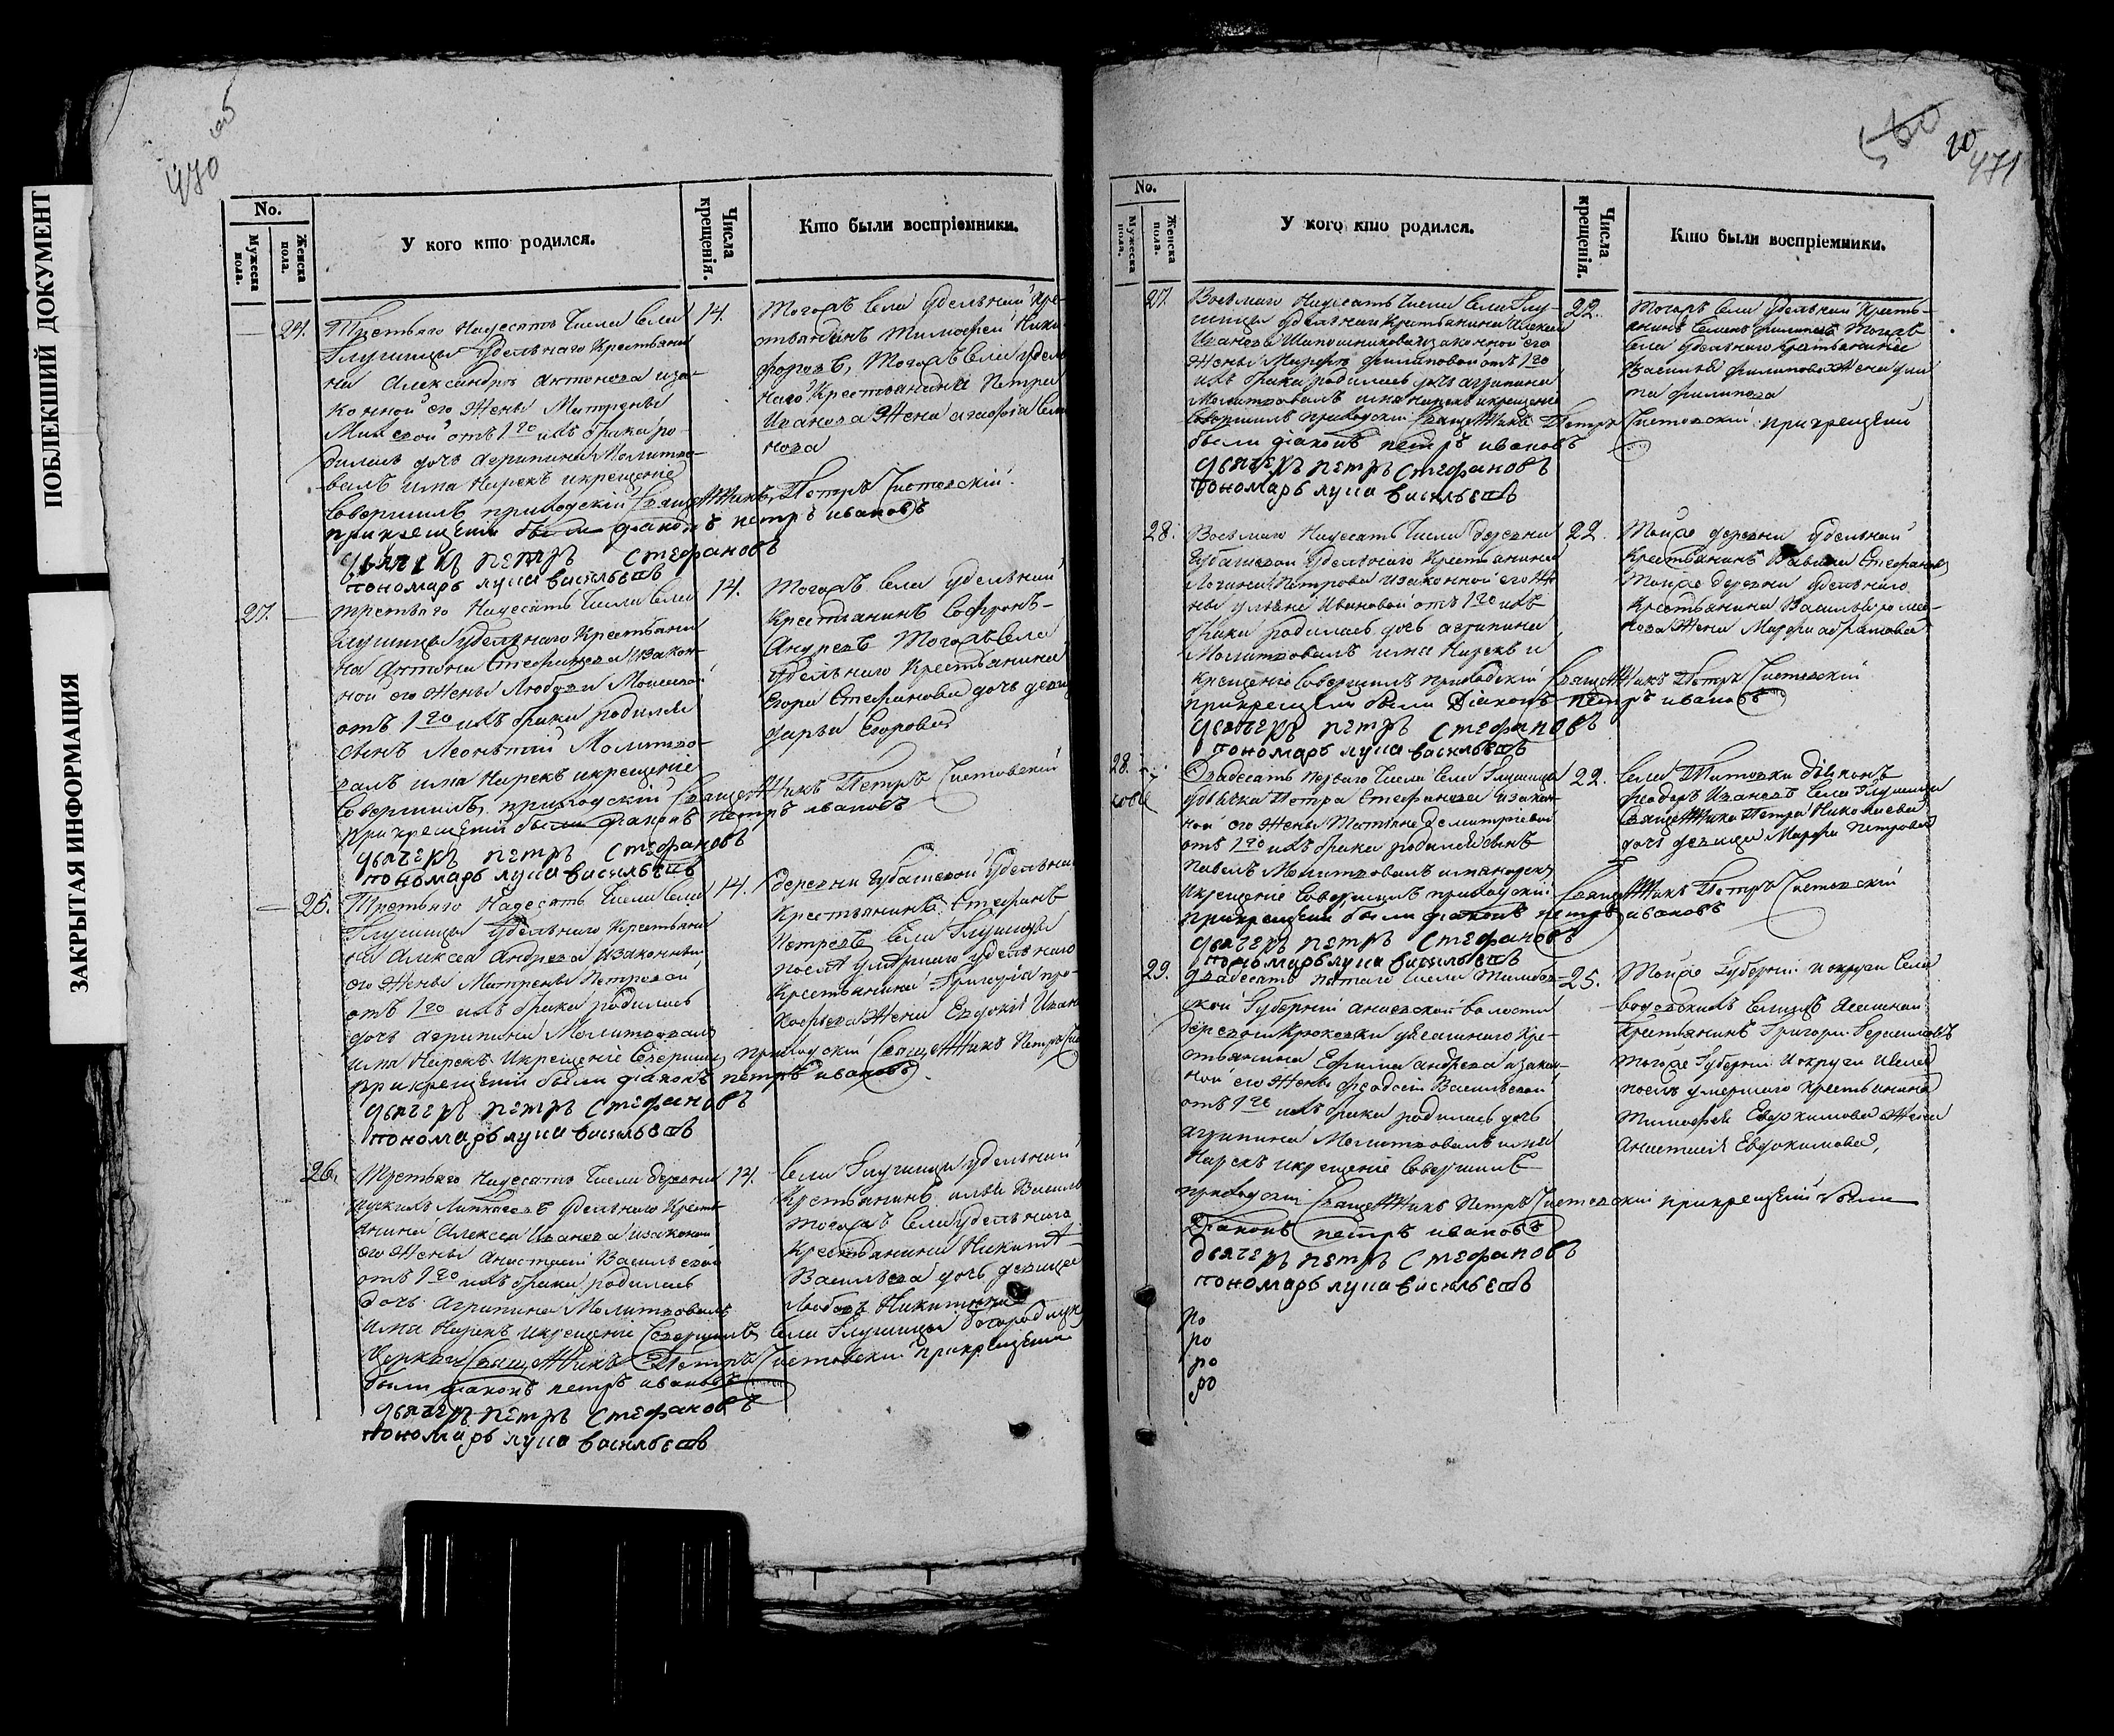 ПОБЛЕКШИЙ ДОКУМЕНТ
ЗАКРЫТАЯ ИНФОРМАЦИЯ
470
об
No.
Мужеска пола.
Женска пола.
У кого кто родился.
Числа крещенія.
Кто были воспріемники.
24.
Третьяго Надесять Числа Села
Глушицы Удельнаго Крестьяни
на Александра Антонова иза-
конной его Жены Матрены
отъ 1го ихъ брака ро-
дилась дочь Агрипина Молитво-
валъ имя Нарекъ икрещеніе
Совершилъ приходскій Священникъ Петръ Чистовскій
прикрещеніи были діаконъ петръ ивановъ
дьячекъ петръ Стефановъ
пономарь лупа васильевъ
14.
Тогожъ Села Удельный Кре-
стьянинъ Тимофей Ники
форовъ, Тогожъ Села удель
наго Крестьянина Петра
Иванова Жена агафія Семе
нова
27.
третьяго Надесять Числа Села
Глушицы Удельнаго Крестьяни
на Антона Стефанова Изакон-
ной его Жены Любови Моисеевой
отъ 1го ихъ брака родился
сынъ Леонътий Молитво-
валъ имя Нарекъ икрещеніе
Совершилъ приходскій Священникъ Петръ Чистовскій
прикрещеніи были діаконъ петръ ивановъ
дьячекъ петръ Стефановъ
пономарь лупа васильевъ
14.
Тогожъ Села удельный
Крестьянинъ Софронъ
Андреевъ Тогожъ Села
Удельнаго Крестьянина
Егора Стефанова дочь девица
дарья Егорова
25.
Третьяго Надесять Числа Села
Глушицы Удельнаго Крестьяни
на Алексея Андреева Изаконной
его Жены Матрены Петровой
отъ 1го ихъ брака родилась
дочь агрипина Молитвовалъ
имя Нарекъ Икрещеніе Совершилъ приходскій Священникъ Петръ Чис
прикрещеніи были діаконъ петръ ивановъ
дьячекъ петръ Стефановъ
пономарь лупа васильевъ
14.
деревни Губашевой Удельный
Крестьянинъ Стефанъ
Петровъ Села Глушицы
после умершаго удельнаго
Крестьянина Григорія Про-
кофьева Жена Евдокія Иван
26.
Третьяго Надесять Числа деревни
Удельнаго Кресть
янина Алексея Иванова Изаконной
его Жены Анастасіи Васильевой
отъ 1го ихъ брака родилась
дочь Агрипина Молитвовалъ
имя Нарекъ Икрещеніе Совершилъ Села Глушицы богородицкой
Церкви Священникъ Петръ Чистовскій прикрещеніи
были діаконъ петръ ивановъ
дьячекъ петръ Стефановъ
пономарь лупа васильевъ
14.
Села Глушицы удельный
Крестьянинъ илья Василь
тогожъ Села Удельнаго
Крестьянина Никиты
Васильева дочь девица
Любовь Никитина
20
471
No.
Мужеска пола.
Женска пола.
У кого кто родился.
Числа крещенія.
Кто были воспріемники.
27.
Восьмаго Надесять Числа Села Глу-
шицы Удельнаго Крестьянина Алексея
Иванова Шапошникова изаконной его
Жены Марфы филиповой отъ 1го
ихъ брака родилась дочь агрипина
Молитвовалъ имя нарекъ икрещеніе
Совершилъ приходскій Священникъ Петръ Чистовскій прикрещеніи
были діаконъ петръ ивановъ
дьячекъ петръ Стефановъ
пономарь лупа васильевъ
22.
Тогожъ Села Удельный Кресть-
янинъ Семенъ филиповъ Тогожъ
Села Удельнаго Крестьянина
Василья филипова Жена
филипова
28.
Восьмаго Надесять Числа деревни
Губашевой Удельнаго Крестьянина
Логина Петрова Изаконной его Же
ны ульяны Ивановой отъ 1го ихъ
брака родилась дочь агрипина
Молитвовалъ имя Нарекъ и
Крещеніе Совершилъ приходскій Священникъ Петръ Чистовскій
прикрещеніи были Діаконъ петръ ивановъ
дьячекъ петръ Стефановъ
пономарь лупа васильевъ
22.
Тойже деревни удельный
Крестьянинъ Вавила Стефановъ
Тойже деревни удельнаго
Крестьянина Василья
Жена Марфа абрамова
28.
Двадесять перваго Числа Села Глушицы
дьячка Петра Стефанова изакон-
ной его Жены Татьяны Демитріевой
отъ 1го ихъ брака родился сынъ
Павелъ Молитвовалъ имя нарекъ
икрещеніе Совершилъ приходскій Священникъ Петръ Чистовскій
прикрещеніи были діаконъ петръ ивановъ
дьячекъ петръ Стефановъ
пономарь лупа васильевъ
22.
Села Титовки діаконъ
феодоръ Ивановъ Села Глушицы
Священника Петра Николаева
дочь девица Марфа Петрова
29.
двадесять пятаго Числа Тамбов-
ской Губерніи волости
деревни Крюковки Крe-
стьянина Ефима андреева изакон-
ной его Жены феодосіи Васильевой
отъ 1го ихъ брака родилась дочь
агрипина Молитвовалъ имя
Нарекъ икрещеніе Совершилъ
приходскій Священникъ Петръ Чистовскій прикрещеніи были
Діаконъ петръ ивановъ
дьячекъ петръ Стефановъ
пономарь лупа васильевъ
25.
Тойже Губерніи иокруги Села
Крестьянинъ Григорій Герасимовъ
Тойже Губерніи Иокруги
послѣ умершаго Крестьянина
Тимофея Евдокимова Жена
Анастасія Евдокимова,
ро
ро
ро
ро